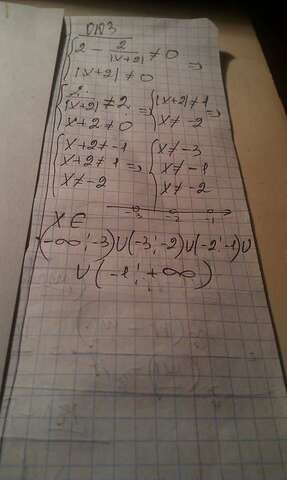 ОДЗ
{ 2 - 2/|x+2| ≠ 0
|x+2| ≠ 0 =>
{ 2/|x+2| ≠ 2
x+2 ≠ 0 => { |x+2| ≠ 1
x ≠ -2 =>
{ x+2 ≠ -1
x+2 ≠ 1
x ≠ -2 => { x ≠ -3
x ≠ -1
x ≠ -2
-3 -2 -1
x ∈
(-∞; -3) ∪ (-3; -2) ∪ (-2; -1) ∪
∪ (-1; +∞)